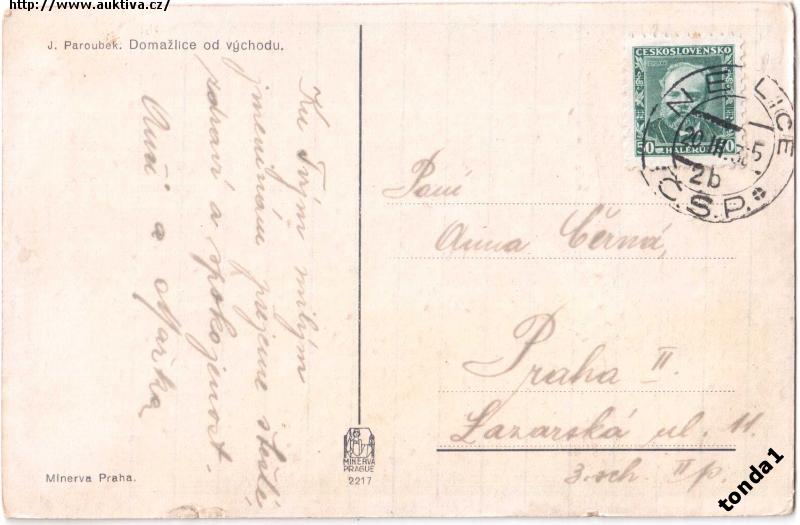 http://www.auktiva.cz/
J. Paroubek. Domažlice od východu.
Ku Tvým milým
jmeninám přejeme stálé
zdraví a spokojenost.
Anči a Mařka
ČESKOSLOVENSKO
50 HALÉŘŮ 50
20.III.
2b
Č.S.P.
Paní
Anna Černá,
Praha II.
Lazarská ul. 11.
3. sch. II p.
MINERVA
PRAGUE
2217
Minerva Praha.
tonda1